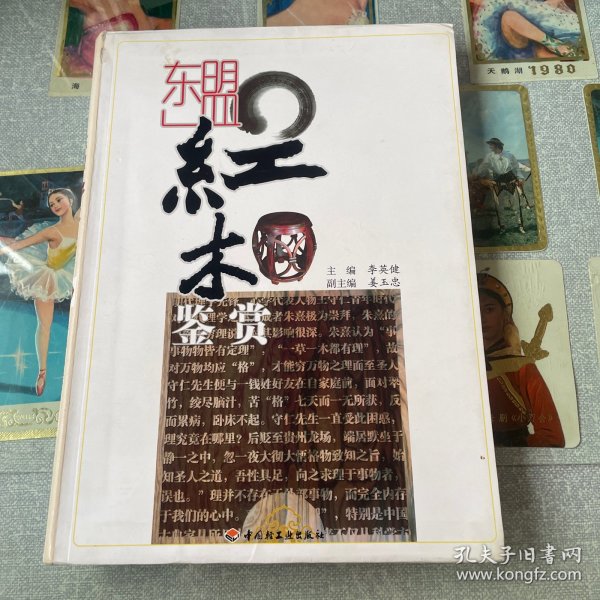 海
天鹅湖 1980
东盟
紅木
鉴赏
主编 李英健
副主编 姜玉忠
事物物皆有定理”,“一草一木都有理”,故
对万物均应“格”,才能穷万物之理而至圣人
守仁先生便与一钱姓好友在自家庭前,面对翠
竹,绞尽脑汁,苦“格”七天而一无所获,反
而累病,卧床不起。守仁先生一直受此困惑,
理究竟在哪里?后贬至贵州龙场,端居默坐于
静一之中,忽一夜大彻大悟格物致知之旨,始
知圣人之道,吾性具足,向之求理于事物者,
误也。”理并不存在于外部事物,而完全内存
于我们的心中。
特别是中国
中国轻工业出版社
孔夫子旧书网
www.kongfz.com